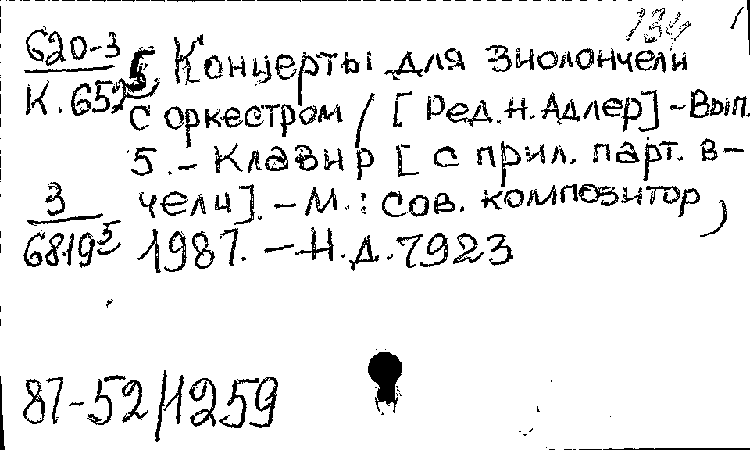 134
620-3 5 Концерты для виолончели
К.652 5 с оркестром / [Ред. Н. Адлер] - Вып.
5. - Клавир [с прил. парт. в-
3 чели]. - М. : Сов. композитор,
6819 5 1987. - Н.д. 7923
87-52/1259